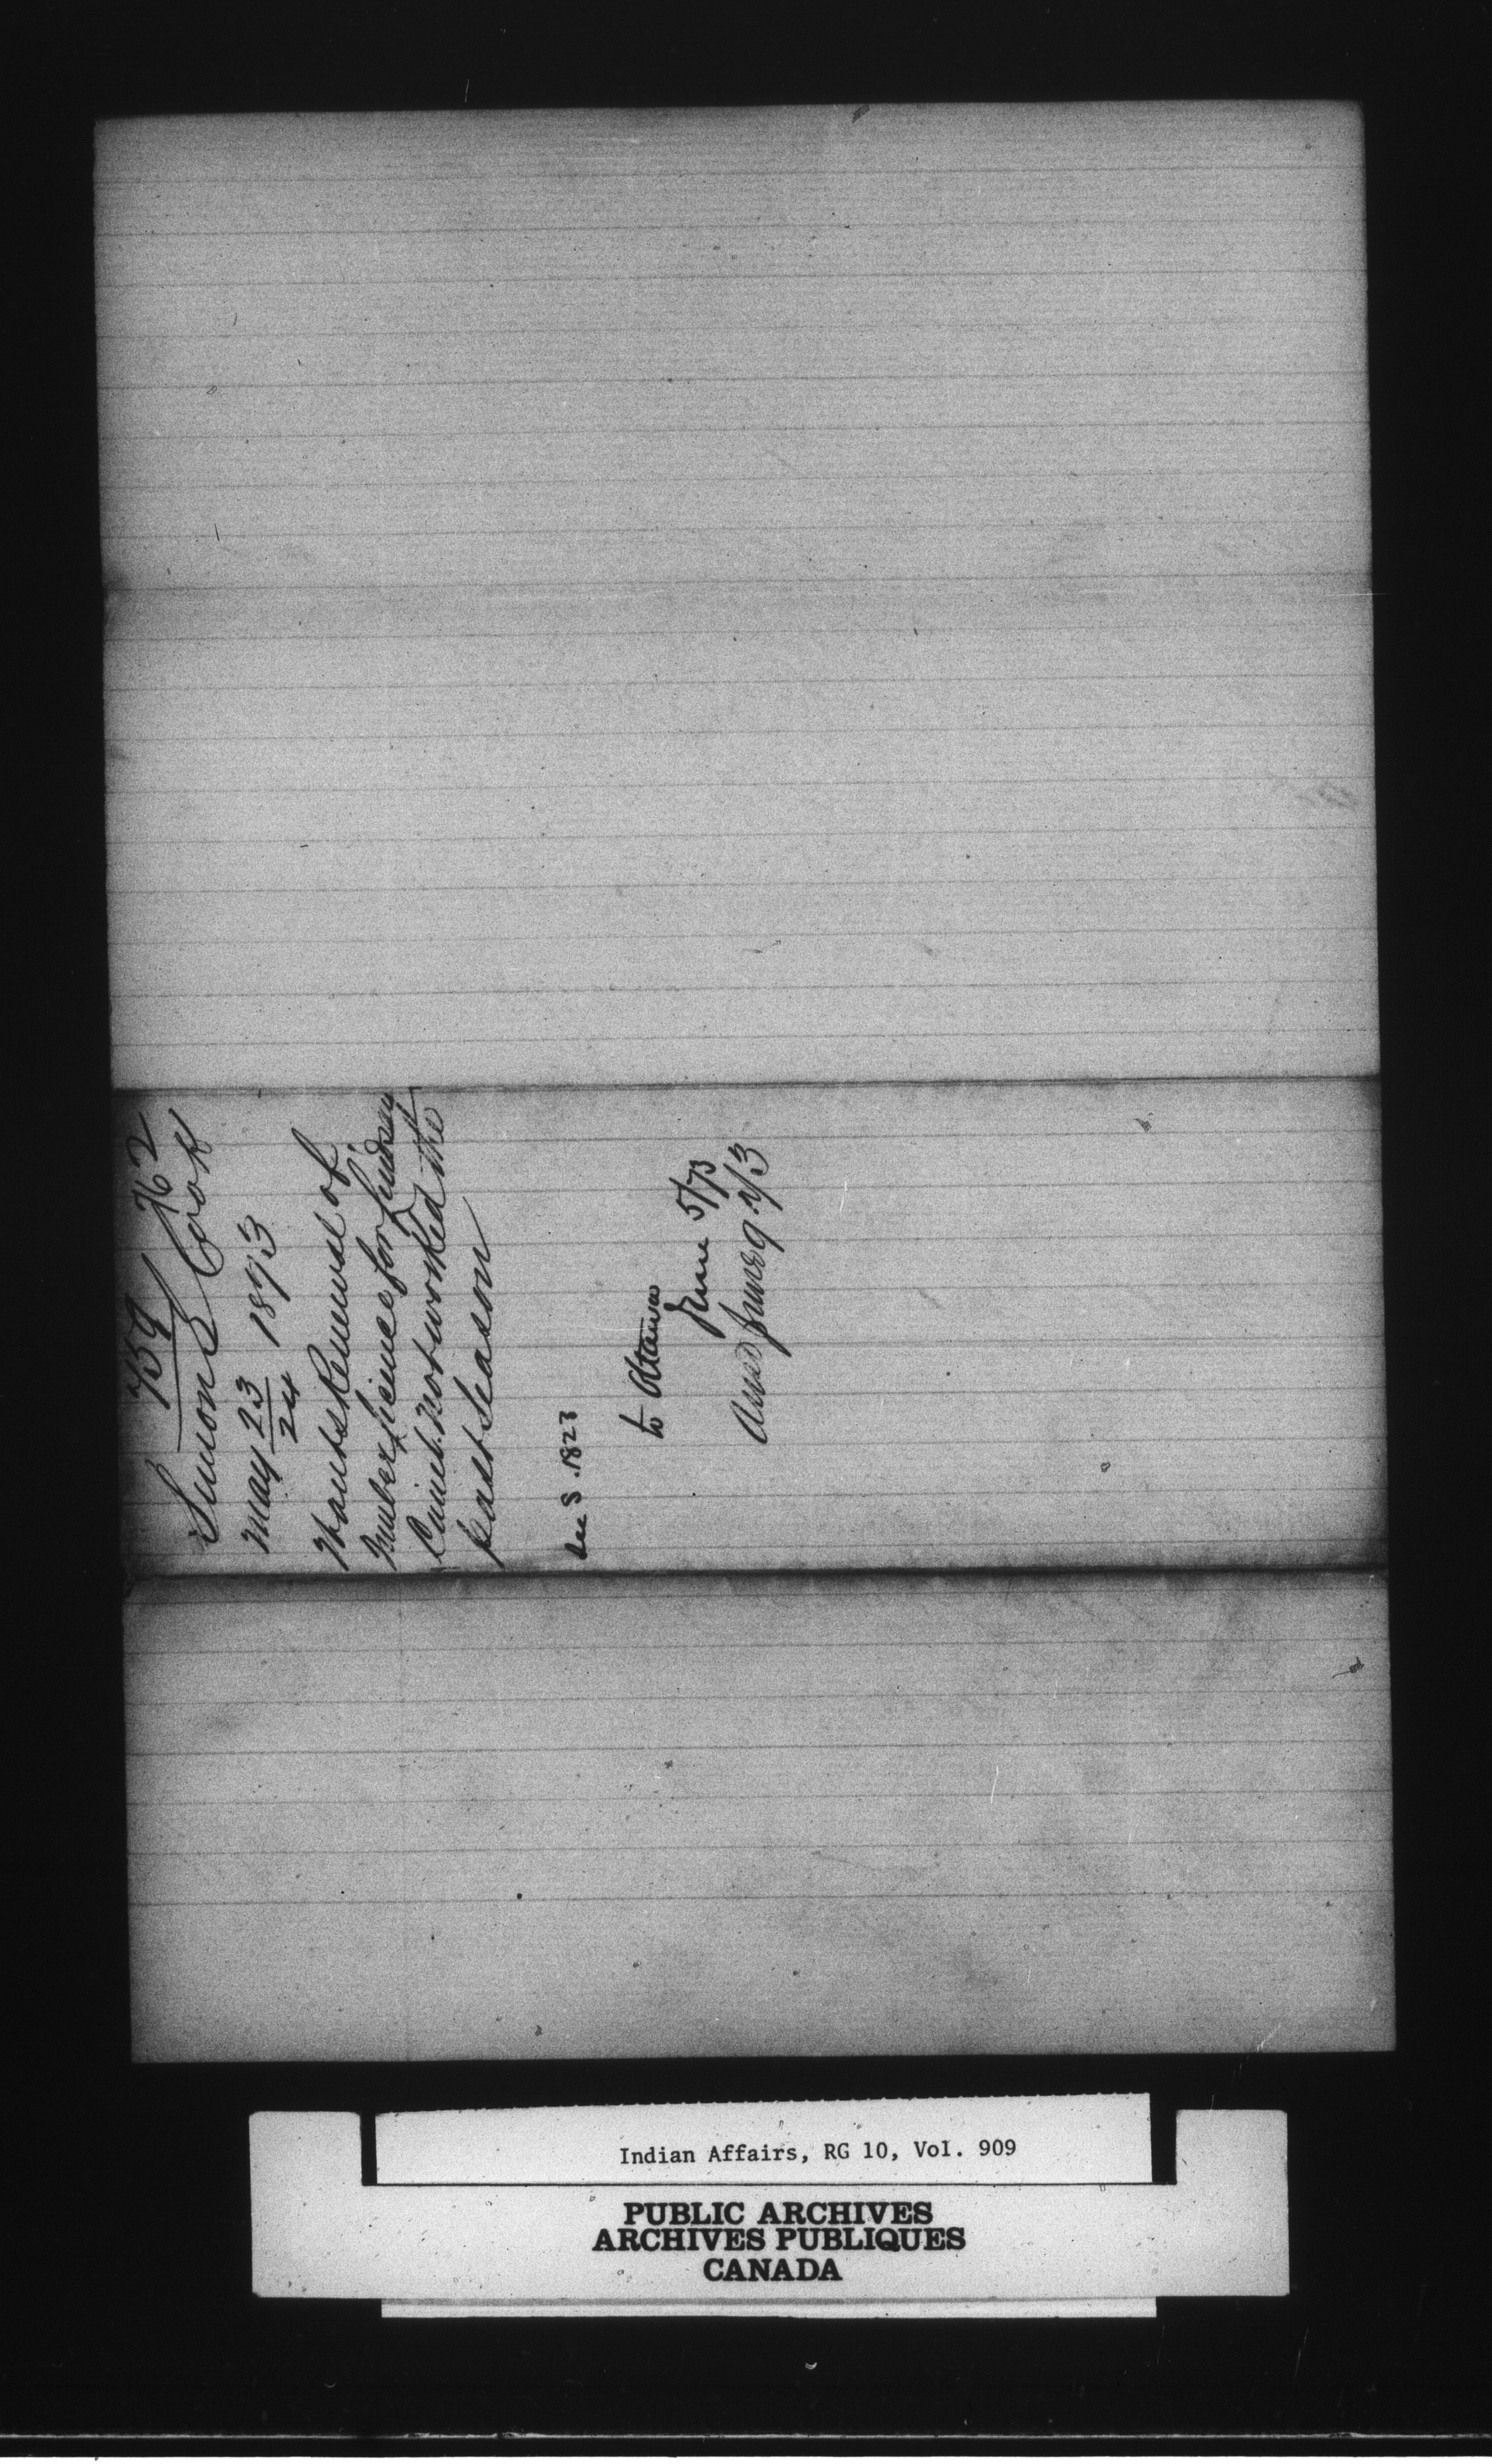 759 762
Simon S Cook
May 23/24 1873
Wants Renewal of
Timber Licence for Lindsay
Could not worked the
past season
See S. 1823
to Ottawa
June 5/73
Ansd June 9 7/3
Indian Affairs, RG 10, Vol. 909
PUBLIC ARCHIVES
ARCHIVES PUBLIQUES
CANADA